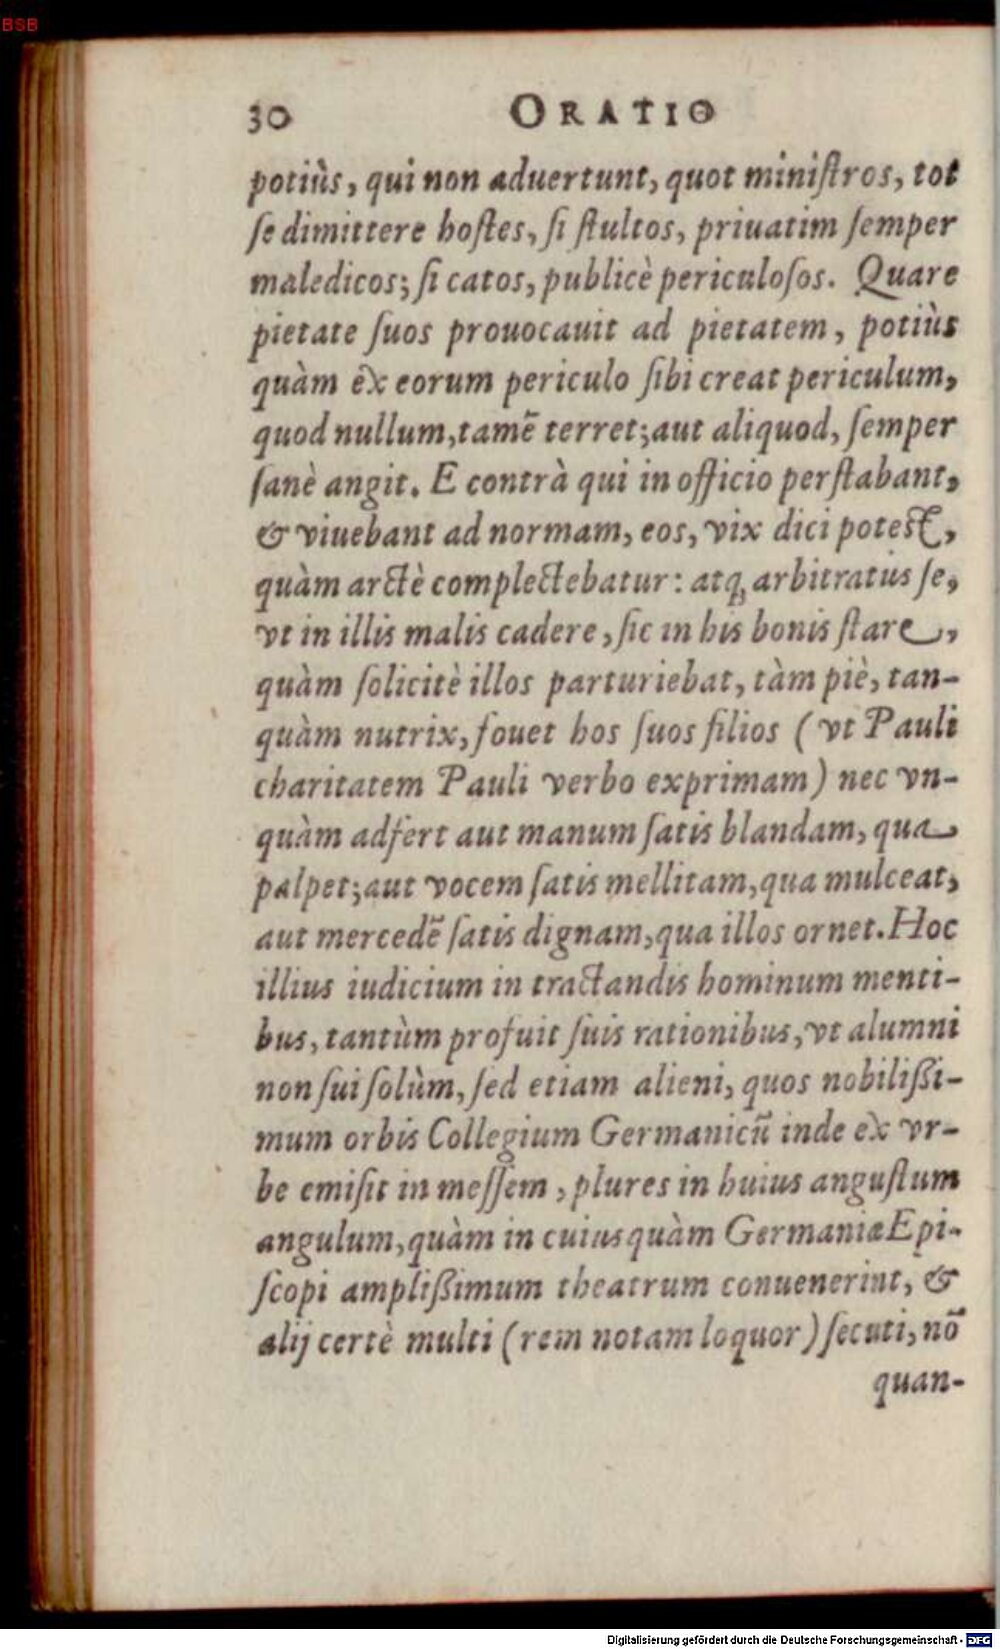 BSB
30 ORATIO
potiùs, qui non aduertunt, quot ministros, tot
se dimittere hostes, si stultos, priuatim semper
maledicos; si catos, publicè periculosos. Quare
pietate suos prouocauit ad pietatem, potiùs
quàm ex eorum periculo sibi creat periculum,
quod nullum, tamē terret; aut aliquod, semper
sanè angit. E contrà qui in officio perstabant,
& viuebant ad normam, eos, vix dici potest,
quàm arctè complectebatur: atq; arbitratus se,
vt in illis malis cadere, sic in his bonis stare,
quàm solicitè illos parturiebat, tàm piè, tan-
quàm nutrix, fouet hos suos filios (vt Pauli
charitatem Pauli verbo exprimam) nec vn-
quàm adfert aut manum satis blandam, qua
palpet; aut vocem satis mellitam, qua mulceat,
aut mercedē satis dignam, qua illos ornet. Hoc
illius iudicium in tractandis hominum menti-
bus, tantùm profuit suis rationibus, vt alumni
non sui solùm, sed etiam alieni, quos nobilißi-
mum orbis Collegium Germanicū inde ex vr-
be emisit in messem, plures in huius angustum
angulum, quàm in cuiusquàm Germaniæ Epi-
scopi amplißimum theatrum conuenerint, &
alij certè multi (rem notam loquor) secuti, nō
quan-
Digitalisierung gefördert durch die Deutsche Forschungsgemeinschaft - DFG